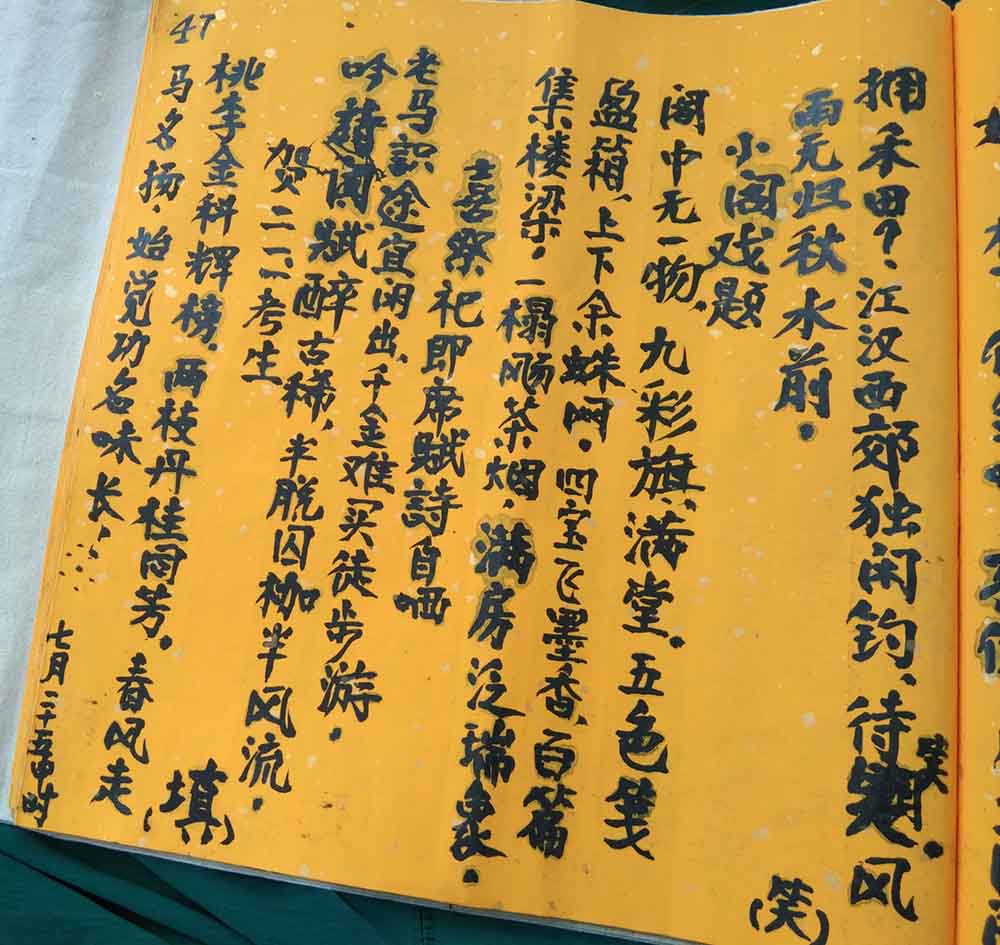 拥禾田？江汉西郊独闲钓、待趣风
笑
雨无归秋水前．
（笑）
小阁戏题
阁中无一物，九彩旗满堂．五色笺
盈箱，上下余蛛网．四宝飞墨香，百篇
集楼梁．一榻飏茶烟．满房泛瑞
喜祭祀即席赋詩自哂
老马识途宜闲出，千金难买徒步游．
吟诗阁赋醉古稀，半脱囚枷半风流．
贺二二考生
桃李金科辉榜，两枝丹桂同芳．春风走
（填）
马名扬．始觉功名味长．
七月二十五申时
47